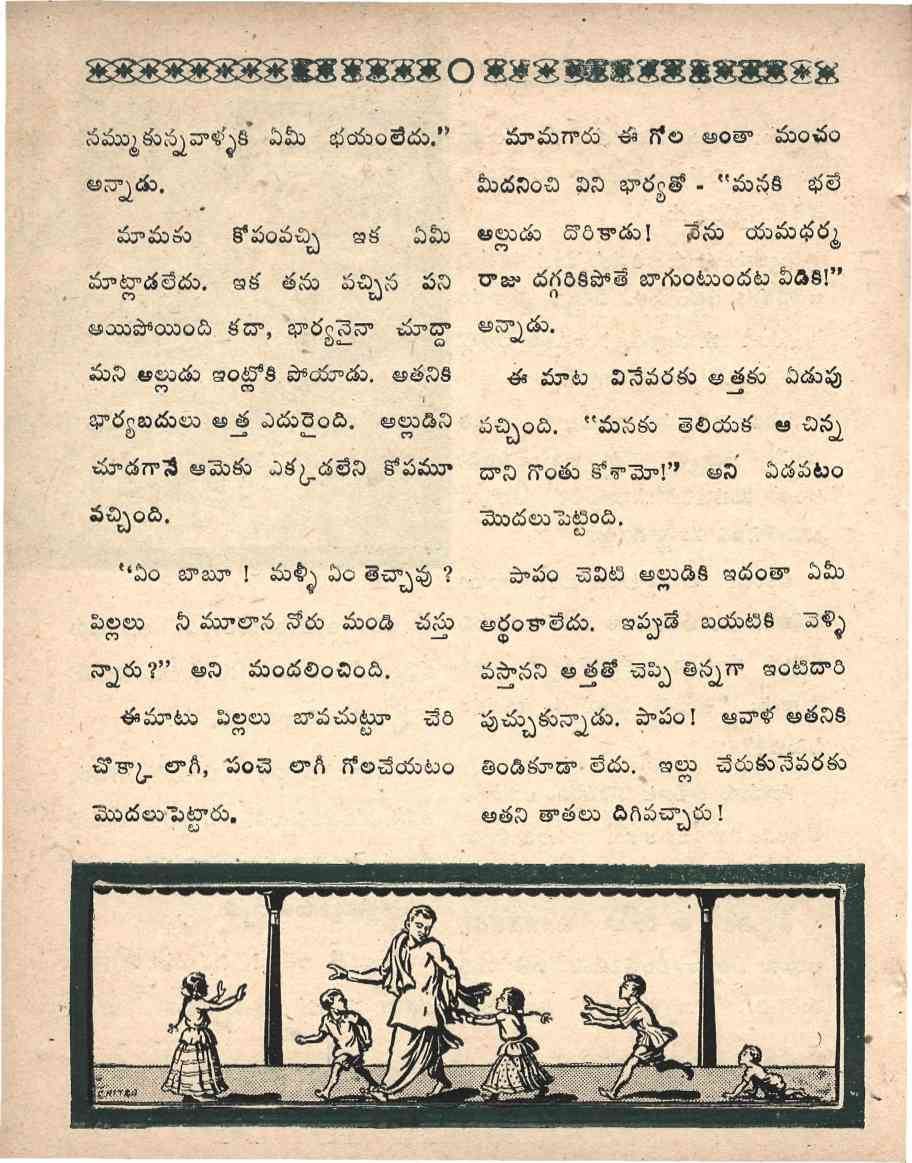 నమ్ముకున్నవాళ్ళకి ఏమీ భయంలేదు.”
అన్నాడు.
మామకు కోపంవచ్చి ఇక ఏమీ
మాట్లాడలేదు. ఇక తను వచ్చిన పని
అయిపోయింది కదా, భార్యనైనా చూద్దా
మని అల్లుడు ఇంట్లోకి పోయాడు. అతనికి
భార్యబదులు అత్త ఎదురైంది. అల్లుడిని
చూడగానే ఆమెకు ఎక్కడలేని కోపమూ
వచ్చింది.
“ఏం బాబూ ! మళ్ళీ ఏం తెచ్చావు ?
పిల్లలు నీ మూలాన నోరు మండి చస్తు
న్నారు ?” అని మందలించింది.
ఈమాటు పిల్లలు బావచుట్టూ చేరి
చొక్కా లాగీ, పంచె లాగీ గోలచేయటం
మొదలుపెట్టారు.
మామగారు ఈ గోల అంతా మంచం
మీదనించి విని భార్యతో - “మనకి భలే
అల్లుడు దొరికాడు! నేను యమధర్మ
రాజు దగ్గరికిపోతే బాగుంటుందట వీడికి!”
అన్నాడు.
ఈ మాట వినేవరకు అత్తకు ఏడుపు
వచ్చింది. “మనకు తెలియక ఆ చిన్న
దాని గొంతు కోశామో!” అని ఏడవటం
మొదలుపెట్టింది.
పాపం చెవిటి అల్లుడికి ఇదంతా ఏమీ
అర్థంకాలేదు. ఇప్పుడే బయటికి వెళ్ళి
వస్తానని అత్తతో చెప్పి తిన్నగా ఇంటిదారి
పుచ్చుకున్నాడు. పాపం! ఆవాళ అతనికి
తిండికూడా లేదు. ఇల్లు చేరుకునేవరకు
అతని తాతలు దిగివచ్చారు!
CHITRA